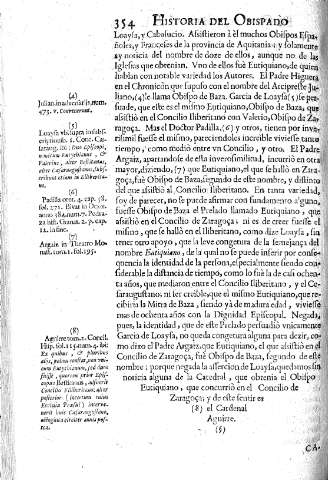 354 HISTORIA DEL OBISPADO
Loaysa, y Cabolucio. Assistieron à èl muchos Obispos Espa-
ñoles, y Franceses de la provincia de Aquitania: y solamente
ay noticia del nombre de doze de ellos, aunque no de las
Iglesias que obtenian. Vno de ellos fuè Eutiquiano, de quien
hablan con notable variedad los Autores. El Padre Higuera
en el Chronicòn que supuso con el nombre del Arcipreste Ju-
liano, (4) le llama Obispo de Baza. Garcia de Loaysa, (5) se per-
suade, que este es el mismo Eutiquiano, Obispo de Baza, que
assistiò en el Concilio Iliberitano con Valerio, Obispo de Za-
ragoça. Mas el Doctor Padilla, (6) y otros, tienen por inve-
risimil fuesse el mismo, pareciendoles increible viviesse tanto
tiempo, como mediò entre vn Concilio, y otro. El Padre
Argaiz, apartandose de esta inverosimilitud, incurriò en otra
mayor, diziendo, (7) que Eutiquiano, el que se hallò en Zara-
goça, fuè Obispo de Baza, segundo de este nombre, y distinto
del que assistiò al Concilio Iliberitano. En tanta variedad,
soy de parecer, no se puede afirmar con fundamento alguno,
fuesse Obispo de Baza el Prelado llamado Eutiquiano, que
assistiò en el Concilio de Zaragoça; ni es de creer fuesse el
mismo, que se hallò en el Iliberitano, como dize Loaysa, sin
tener otro apoyo, que la leve congetura de la semejança del
nombre Eutiquiano, de la qual no se puede inferir por conse-
quencia la identidad de la persona, especialmente siendo con-
siderable la distancia de tiempo, como lo fuè la de casi ochen-
ta años, que mediaron entre el Concilio Iliberitano, y el Ce-
saraugustano: ni ser creible, que el mismo Eutiquiano, que re-
cibiria la Mitra de Baza, siendo yà de madura edad, viviesse
mas de ochenta años con la Dignidad Episcopal. Negada,
pues, la identidad, que de este Prelado persuadiò vnicamente
Garcia de Loaysa, no queda congetura alguna para dezir, co-
mo dixo el Padre Argaiz, que Eutiquiano, el que assistiò en el
Concilio de Zaragoça, fuè Obispo de Baza, segundo de este
nombre: porque negada la assercion de Loaysa, quedamos sin
noticia alguna de la Catedral, que obtenia el Obispo
Eutiquiano, que concurriò en el Concilio de
Zaragoça; y de este sentir es
(8) el Cardenal
Aguirre.
(§)
CA-
(4)
(5)
(6)
Padilla cent. 4. cap. 58.
(7)
Argaiz in Theatro Mo-
(8)